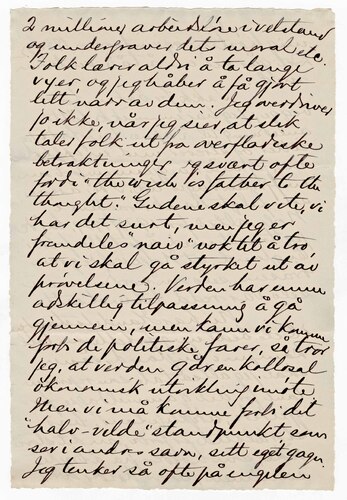 2 millioner arbeidsløse i velstand
og undergraver dets moral etc.
Folk lærer aldri å ta lange
og jeg håber å få gjort
litt nærv av dem. Jeg overdriver
jo ikke, når jeg sier, at slik
tales folk ut fra overfladiske
betraktninger, og svært ofte
fordi "the wish is father to the
thought." Gudene skal vite, vi
har det surt, men jeg er
fremdeles naiv nok til å tro,
at vi skal gå styrket ut av
prøvelsene. Verden har ennu
adskillig tilpasning å gå
gjennem, men kann vi komme
forbi de politiske farer, så tror
jeg, at verden går en kollosal
økonomisk utvikling imøte.
Men vi må komme forbi det
"halv-vilde" standpunkt som
ser i andres savn, sett eget gagn.
Jeg tenker så ofte på